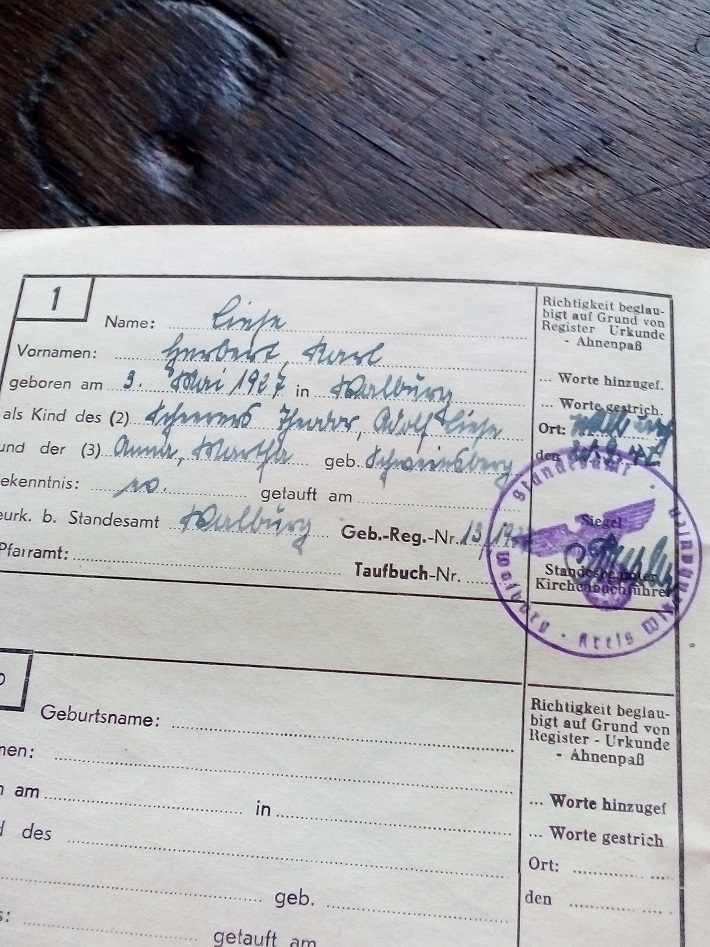 1
Name: Liese
Vornamen: Herbert, Karl
geboren am 3. Mai 1927 in Walburg
als Kind des (2) Theodor, Adolf Liese
und der (3) Anna, Martha geb.
ekenntnis: ev.
getauft am
eurk. b. Standesamt Walburg Geb.-Reg.-Nr. 13/19
Pfarramt:
Taufbuch-Nr.
Richtigkeit beglau-
bigt auf Grund von
Register Urkunde
- Ahnenpaß
... Worte hinzugef.
... Worte gestrich.
Ort: Walburg
den
Siegel
Standesbeamter
Kirchenbuchführer
Standesamt
Walburg · Kreis
Geburtsname:
nen:
am
in
des
geb.
s:
getauft am
Richtigkeit beglau-
bigt auf Grund von
Register - Urkunde
- Ahnenpaß
... Worte hinzugef
... Worte gestrich
Ort:
den